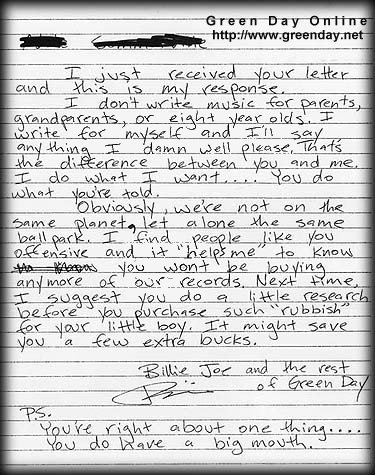 Green Day Online
http://www.greenday.net
I just received your letter
and this is my response.
I don't write music for parents,
grandparents, or eight year olds. I
write for myself and I'll say
anything I damn well please. That's
the difference between you and me.
I do what I want.... You do
what you're told.
Obviously, we're not on the
same planet, let alone the same
ballpark. I find people like you
offensive and it "helps me" to know
you wont be buying
anymore of our records. Next time,
I suggest you do a little research
before you purchase such "rubbish"
for your little boy. It might save
you a few extra bucks.
Billie Joe and the rest
of Green Day
P.S.
You're right about one thing....
You do have a big mouth.